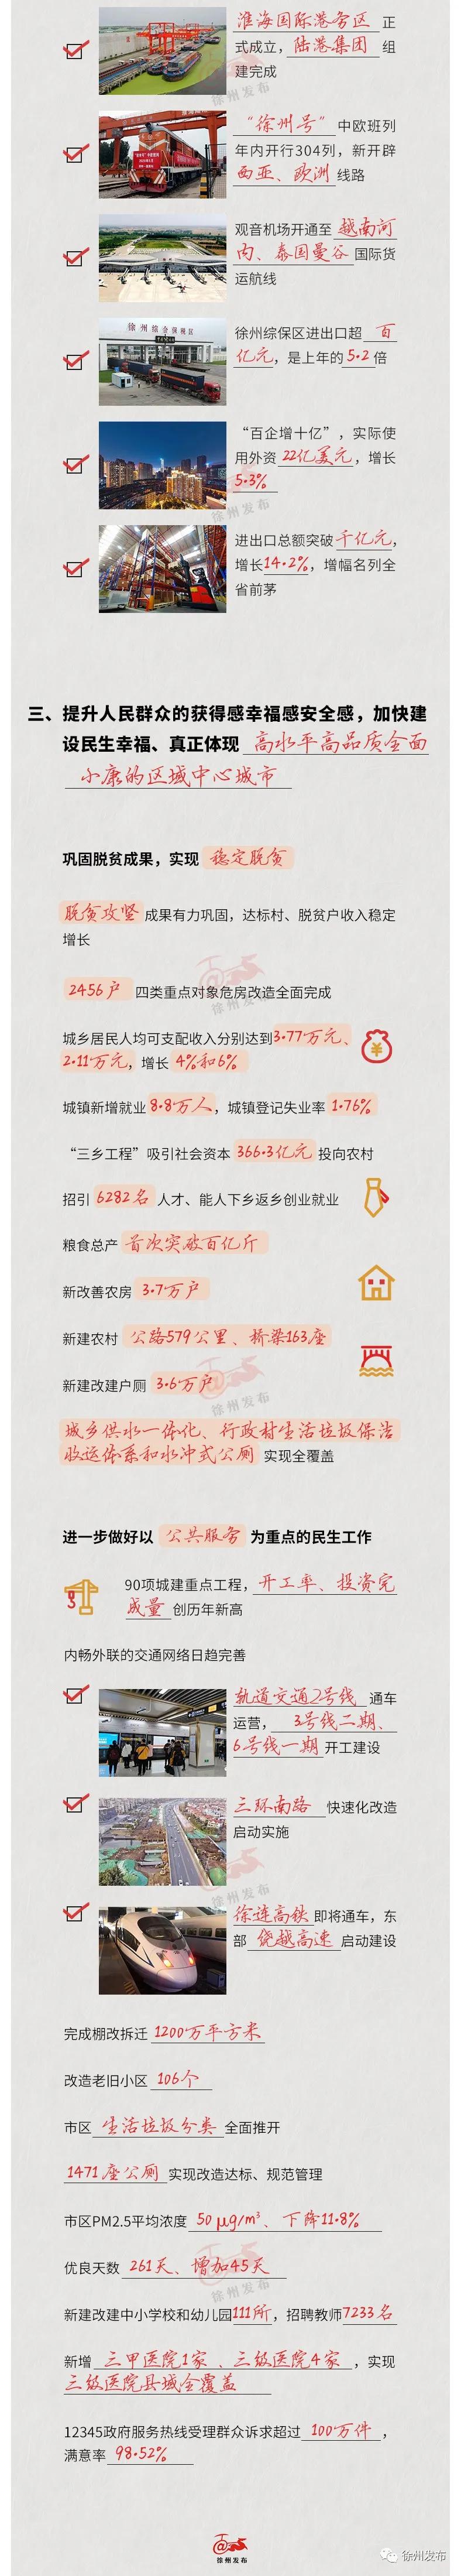 淮海国际港务区 正
式成立，陆港集团 组
建完成
徐州发布
“徐州号” 中欧班列
年内开行304列，新开辟
西亚、欧洲 线路
观音机场开通至 越南河
内、泰国曼谷 国际货
运航线
徐州综合保税区
徐州综保区进出口超 百
亿元，是上年的 5.2 倍
“百企增十亿”，实际使
用外资 22亿美元，增长
5.3%
徐州发布
进出口总额突破 千亿元，
增长14.2%，增幅名列全
省前茅
三、提升人民群众的获得感幸福感安全感，加快建
设民生幸福、真正体现 高水平高品质全面
小康的区域中心城市
巩固脱贫成果，实现 稳定脱贫
脱贫攻坚 成果有力巩固，达标村、脱贫户收入稳定
增长
2456户 四类重点对象危房改造全面完成
徐州发布
城乡居民人均可支配收入分别达到3.77万元、
2.11万元，增长 4%和6%
城镇新增就业 8.8万人，城镇登记失业率 1.76%
“三乡工程”吸引社会资本 366.3亿元 投向农村
招引 6282名 人才、能人下乡返乡创业就业
粮食总产 首次突破百亿斤
新改善农房 3.7万户
新建农村 公路579公里、桥梁163座
新建改建户厕 3.6万户
徐州发布
城乡供水一体化、行政村生活垃圾保洁
收运体系和水冲式公厕 实现全覆盖
进一步做好以 公共服务 为重点的民生工作
90项城建重点工程，开工率、投资完
成量 创历年新高
内畅外联的交通网络日趋完善
轨道交通2号线 通车
运营，3号线二期、
6号线一期 开工建设
三环南路 快速化改造
启动实施
徐州发布
徐连高铁 即将通车，东
部 绕越高速 启动建设
完成棚改拆迁 1200万平方米
改造老旧小区 106个
市区 生活垃圾分类 全面推开
1471座公厕 实现改造达标、规范管理
市区PM2.5平均浓度 50μg/m³、下降11.8%
优良天数 261天、增加45天
徐州发布
新建改建中小学校和幼儿园111所，招聘教师7233名
新增 三甲医院1家、三级医院4家，实现
三级医院县域全覆盖
12345政府服务热线受理群众诉求超过 100万件，
满意率 98.52%
徐州发布
徐州发布